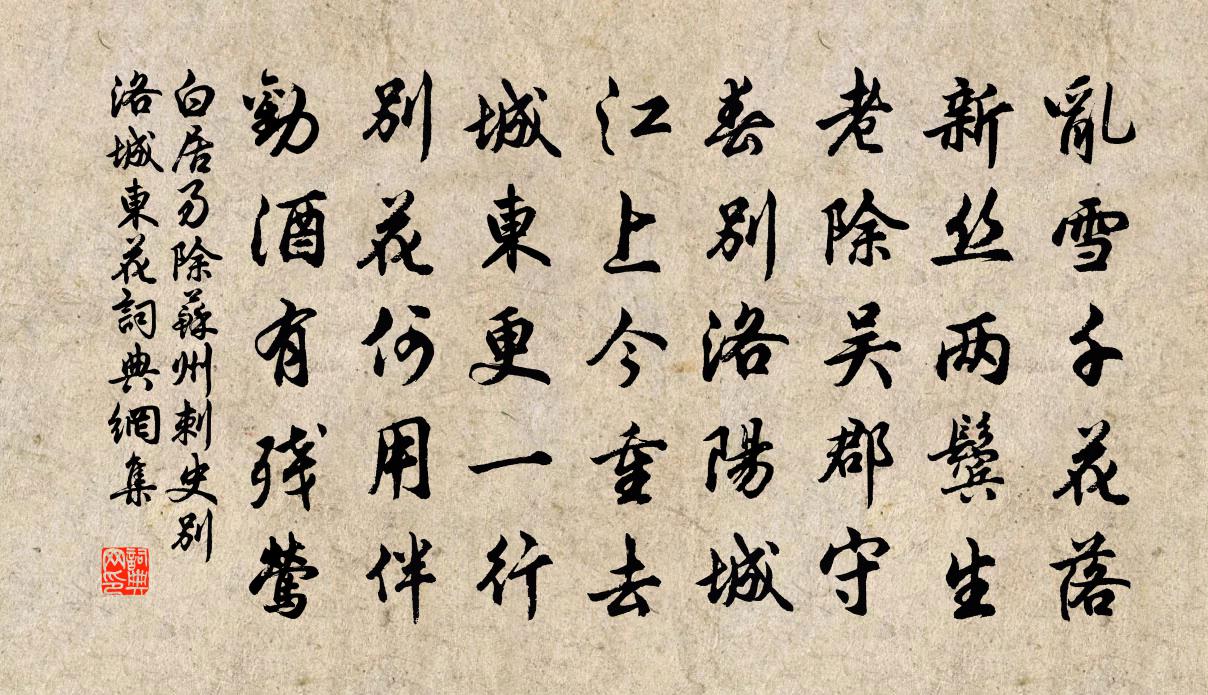 亂雪千花落
新丝两鬓生
老除吴郡守
春别洛陽城
江上今重去
城東更一行
别花何用伴
勸酒有残鶯
白居易除蘇州刺史别
洛城東花詞典網集
詞典网印